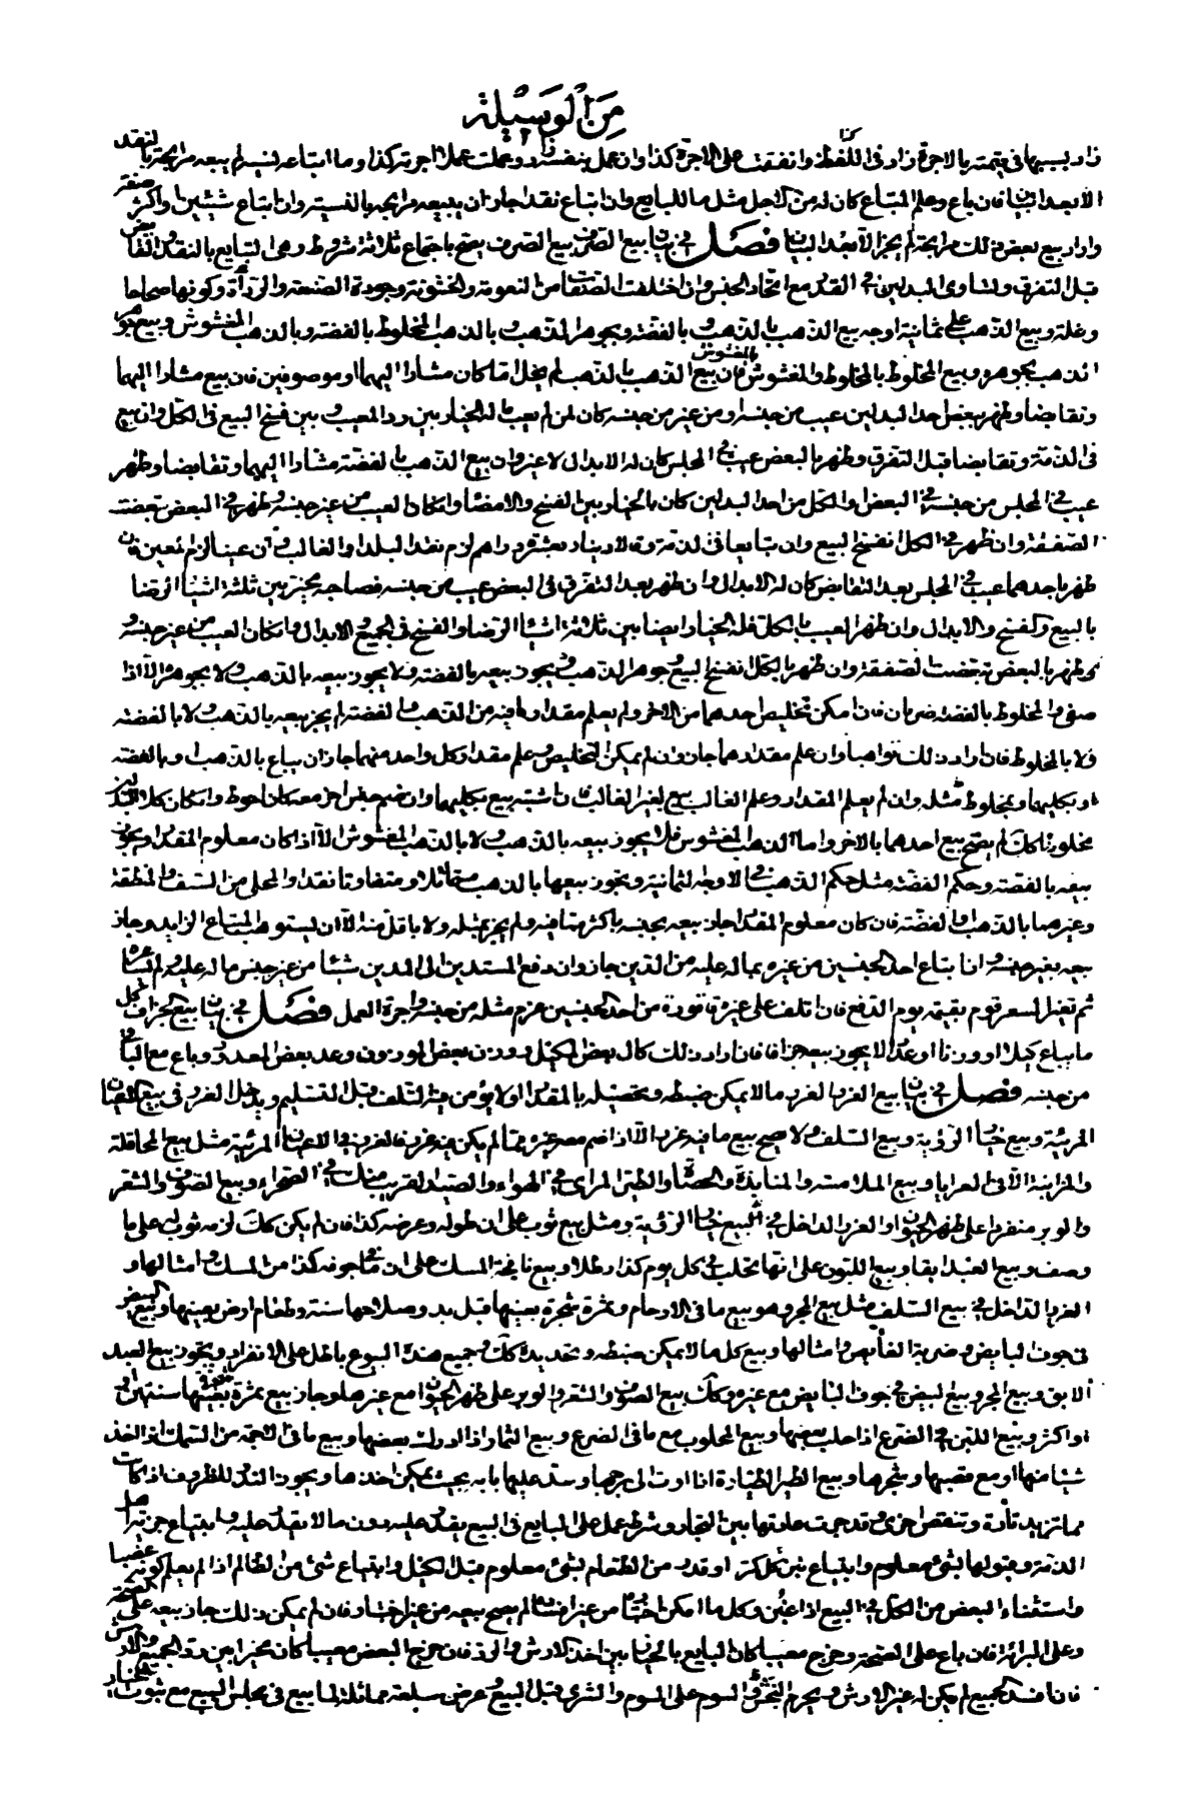 من الوسيلة
زاد بسببها في قيمته بالاجرة زاد في اللفظ وانفقت على الاجرة كذا وان عمل بنفسه زاد وعملت عملا اجرته كذا وما ابتاعه لنسية لم يبعه مرابحة بالنقد
الا بعد البيان فان باع وعلم المبتاع كان له من الاجل مثل ما للبايع وان ابتاع نقدا جاز ان يبيعه مرابحة بالنسية وان ابتاع شيئين واكثر صفقة
واراد بيع بعض ذلك مرابحة لم يجز الا بعد البيان فصل في بيان بيع الصرف بيع الصرف يصح باجتماع ثلاثة شروط وهي البايع بالنقد والتقابض
قبل التفرق وتساوى البدلين في القدر مع اتحاد الجنس وان اختلفت الصفتان من النعومة والخشونة وجودة الصنعة والرداءة وكونها صحاحا
وغلة وبيع الذهب على ثمانية اوجه بيع الذهب بالذهب وبالفضة وبجوهر الذهب وبالذهب المخلوط بالفضة وبالذهب المغشوش وبيع جوهر
الذهب بجوهره وبيع المخلوط بالمخلوط والمغشوش بالمغشوش فان بيع الذهب بالذهب لم يخل اما كان مشارا اليهما او موصوفين فان بيع مشارا اليهما
وتقابضا وظهر ببعض احد البدلين عيب من جنسه او من غير جنسه كان لمن لم يعب ماله الخيار بين رد المعيب وبين فسخ البيع في الكل وان بيع
في الذمة وتقابضا قبل التفرق وظهر بالبعض عيب في المجلس كان له الابدال لا غير وان بيع الذهب بالفضة مشارا اليهما وتقابضا وظهر
عيب في المجلس من جنسه في البعض او الكل من احد البدلين كان بالخيار بين الفسخ والامضاء وان كان العيب من غير جنسه وظهر في البعض تبعضت
الصفقة وان ظهر في الكل انفسخ البيع وان تبايعا في الذمة وقالا دينار بعشرة دراهم لزم نقد البلد او الغالب وان عينا لزم المعين فان
ظهر باحدهما عيب في المجلس بعد التقابض كان له الابدال وان ظهر بعد التفرق في البعض عيب من جنسه فصاحبه مخير بين ثلثة اشياء الرضا
بالبيع والفسخ والابدال وان ظهر العيب بالكل فله الخيار ايضا بين ثلاثة اشياء الرضا والفسخ في الجميع والابدال وان كان العيب من غير جنسه
وظهر بالبعض تبعضت الصفقة وان ظهر بالكل انفسخ البيع وجوهر الذهب يجوز بيعه بالفضة ولا يجوز بيعه بالذهب ولا بجوهره الا اذا
صفي والمخلوط بالفضة ضربان فان امكن تخليص احدهما من الاخر ولم يعلم مقدار ما فيه من الذهب والفضة لم يجز بيعه بالذهب ولا بالفضة
ولا بالمخلوط فان اراد ذلك تواهبا وان علم مقدارهما جاز وان لم يمكن التخليص وعلم مقدار كل واحد منهما جاز ان يباع بالذهب او بالفضة
او بكليهما وبمخلوط مثله وان لم يعلم المقدار وعلم الغالب بيع بغير الغالب فان اشتبه بيع بكليهما وان ضم جنس اخر معه كان احوط وان كان كلا البدلين
مخلوطا كك لم يصح بيع احدهما بالاخر واما الذهب المغشوش فلا يجوز بيعه بالذهب ولا بالذهب المغشوش الا اذا كان معلوم المقدار ويجوز
بيعه بالفضة وحكم الفضة مثل حكم الذهب في الاوجه الثمانية ويجوز بيعها بالذهب متماثلا ومتفاوتا نقدا والمحلى من السيف والمنطقة
وغيرهما بالذهب والفضة فان كان معلوم المقدار جاز بيعه بجنسه باكثر مما فيه ولم يجز بمثله ولا باقل منه الا ان يستوهب المبتاع الزايد وجاز
بيعه بغير جنسه وان ابتاع احد الجنسين من غيره بماله عليه من الدين جاز وان دفع المستدين الى المدين شيئا من غير جنس ماله عليه ولم يساعره
ثم تغير السعر قوم بقيمة يوم الدفع فان اتلف على غيره قارورة من احد الجنسين غرم مثله من جنسه واجرة العمل فصل في بيان بيع الجزاف كل
ما يباع كيلا او وزنا او عدا لا يجوز بيعه جزافا فان اراد ذلك كال بعض المكيل ووزن بعض الموزون وعد بعض المعدود وباع مع الباقي
من جنسه فصل في بيان بيع الغرر الغرر ما لا يمكن ضبطه وتحصيله بالمقدار او لا يؤمن فيه التلف قبل التسليم ويدخل الغرر في بيع الاعيان
المرئية وبيع خيار الرؤية وبيع السلف ولا يصح بيع ما فيه غرر الا اذا ضم معه غيره مما لم يكن فيه غرر فالغرر في الاعيان المرئية مثل بيع المحاقلة
والمزابنة الا في العرايا وبيع الملامسة والمنابذة والحصاة والطير المرئي في الهواء والصيد القريب منك في الصحراء وبيع الصوف والشعر
والوبر منفردا على ظهر الحيوان والغرر الداخل في البيع خيار الرؤية ومثل بيع ثوب على ان طوله وعرضه كذا فان لم يكن كك لزمه ثوب على ما
وصف وبيع العبد الابق وبيع اللبون على انها تحلب في كل يوم كذا رطلا وبيع نافجة المسك على ان ما في جوفه كذا من المسك وامثالها و
الغرر الداخل في بيع السلف مثل بيع المجر وهو بيع ما في الارحام وثمرة شجرة بعينها قبل بدو صلاحها سنة وطعام ارض بعينها وبيع البيض
في جوف البايض وضربة الغايص وامثالها وبيع كل ما لا يمكن ضبطه وتحديده كك وجميع هذه البيوع باطل على الانفراد ويجوز بيع العبد
الابق وبيع المجر وبيع البيض في جوف البايض مع غيره وكك بيع الصوف والشعر والوبر على ظهر الحيوان مع غيرها وجاز بيع ثمرة شجرة بعينها سنتين او
او اكثر وبيع اللبن في الضرع اذا حلب بعضها وبيع المحلوب مع ما في الضرع وبيع الثمار اذا ادرك بعضها وبيع ما في الاجمة من السمك اذا اخذ
شيئا منها او مع قصبها وشجرها وبيع الطير الطيارة اذا اوت الى برجها وسد عليها بابه بحيث يمكن اخذها ويجوز البدل للظروف اذا كانت
مما تزيد تارة وتنقص اخرى وقد جرت عادتها بين التجار وشرط عمل على البايع في البيع يقدر عليه دون ما لا يقدر عليه وابتياع جزية اهل
الذمة وقبولها بشئ معلوم وابتياع تبن كل كر او قدر من الطعام بشئ معلوم قبل الكيل وابتياع شئ من الظالم اذا لم يعلم كونه غصبا
واستثناء البعض من الكل في البيع اذا عين وكل ما امكن اختباره من غير افساده لم يصح بيعه من غير اختبار فان لم يمكن ذلك جاز بيعه على الصحة
وعلى البراءة فان باع على الصحة وخرج معيبا كان البايع بالخيار بين اخذ الارش والرد فان خرج البعض معيبا كان مخيرا بين رد الجميع والارش
فان افسد الجميع لم يكن له غير الارش ويحرم النجش والسوم على السوم والشرى قبل البيع وعرض سلعة مماثلة لما بيع في مجلس البيع مع ثبوت الخيار